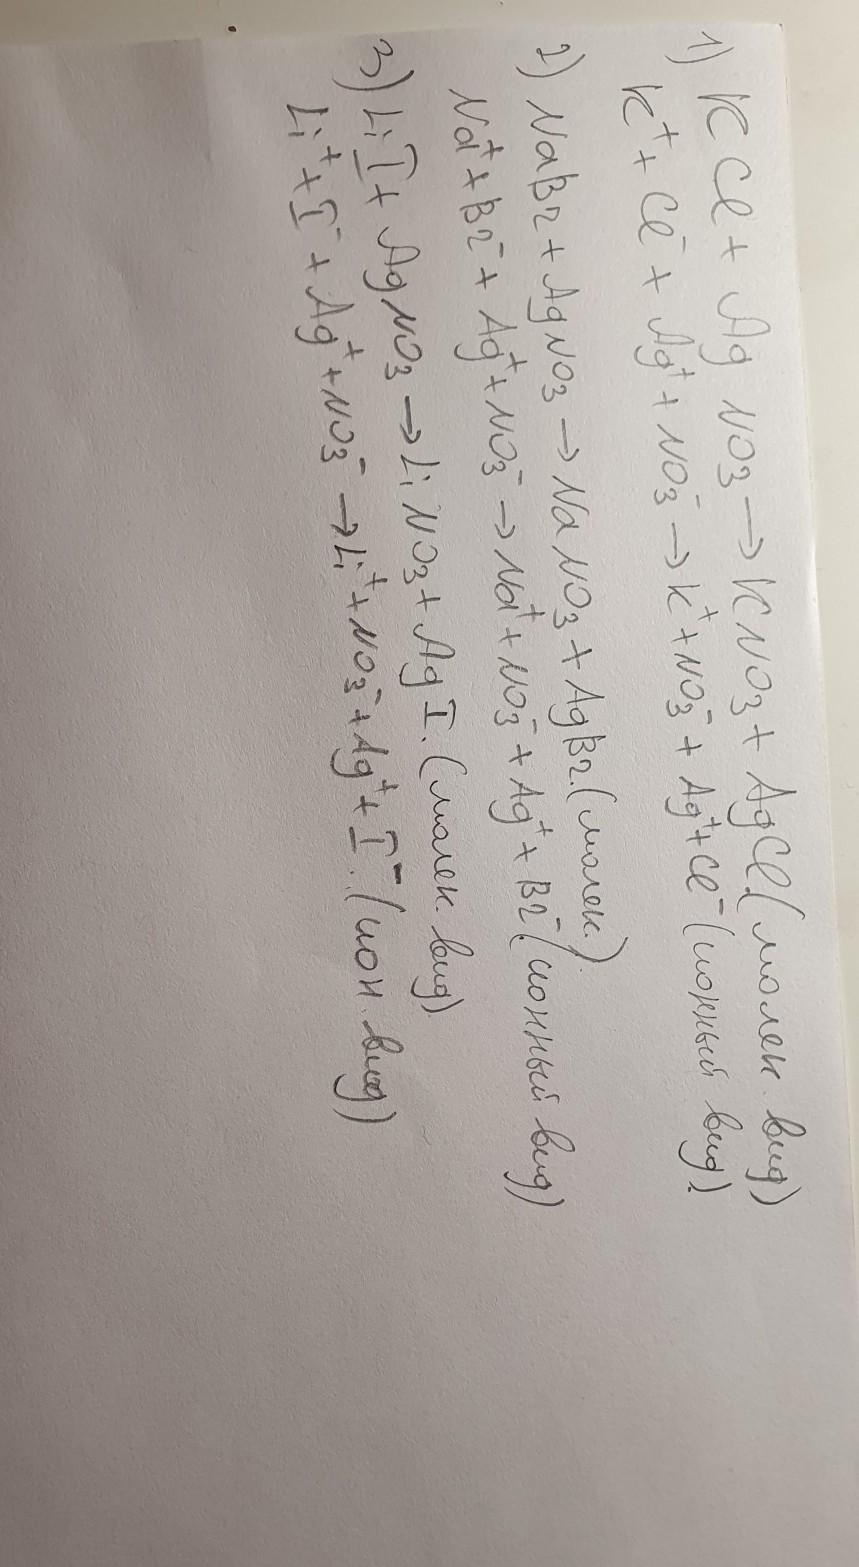 1) KCl + AgNO3 → KNO3 + AgCl (молек. вид)
K⁺ + Cl⁻ + Ag⁺ + NO3⁻ → K⁺ + NO3⁻ + Ag⁺ + Cl⁻ (ионный вид).
2) NaBr + AgNO3 → NaNO3 + AgBr. (молек.)
Na⁺ + Br⁻ + Ag⁺ + NO3⁻ → Na⁺ + NO3⁻ + Ag⁺ + Br⁻. (ионный вид)
3) LiI + AgNO3 → LiNO3 + AgI. (молек вид)
Li⁺ + I⁻ + Ag⁺ + NO3⁻ → Li⁺ + NO3⁻ + Ag⁺ + I⁻. (ион. вид)